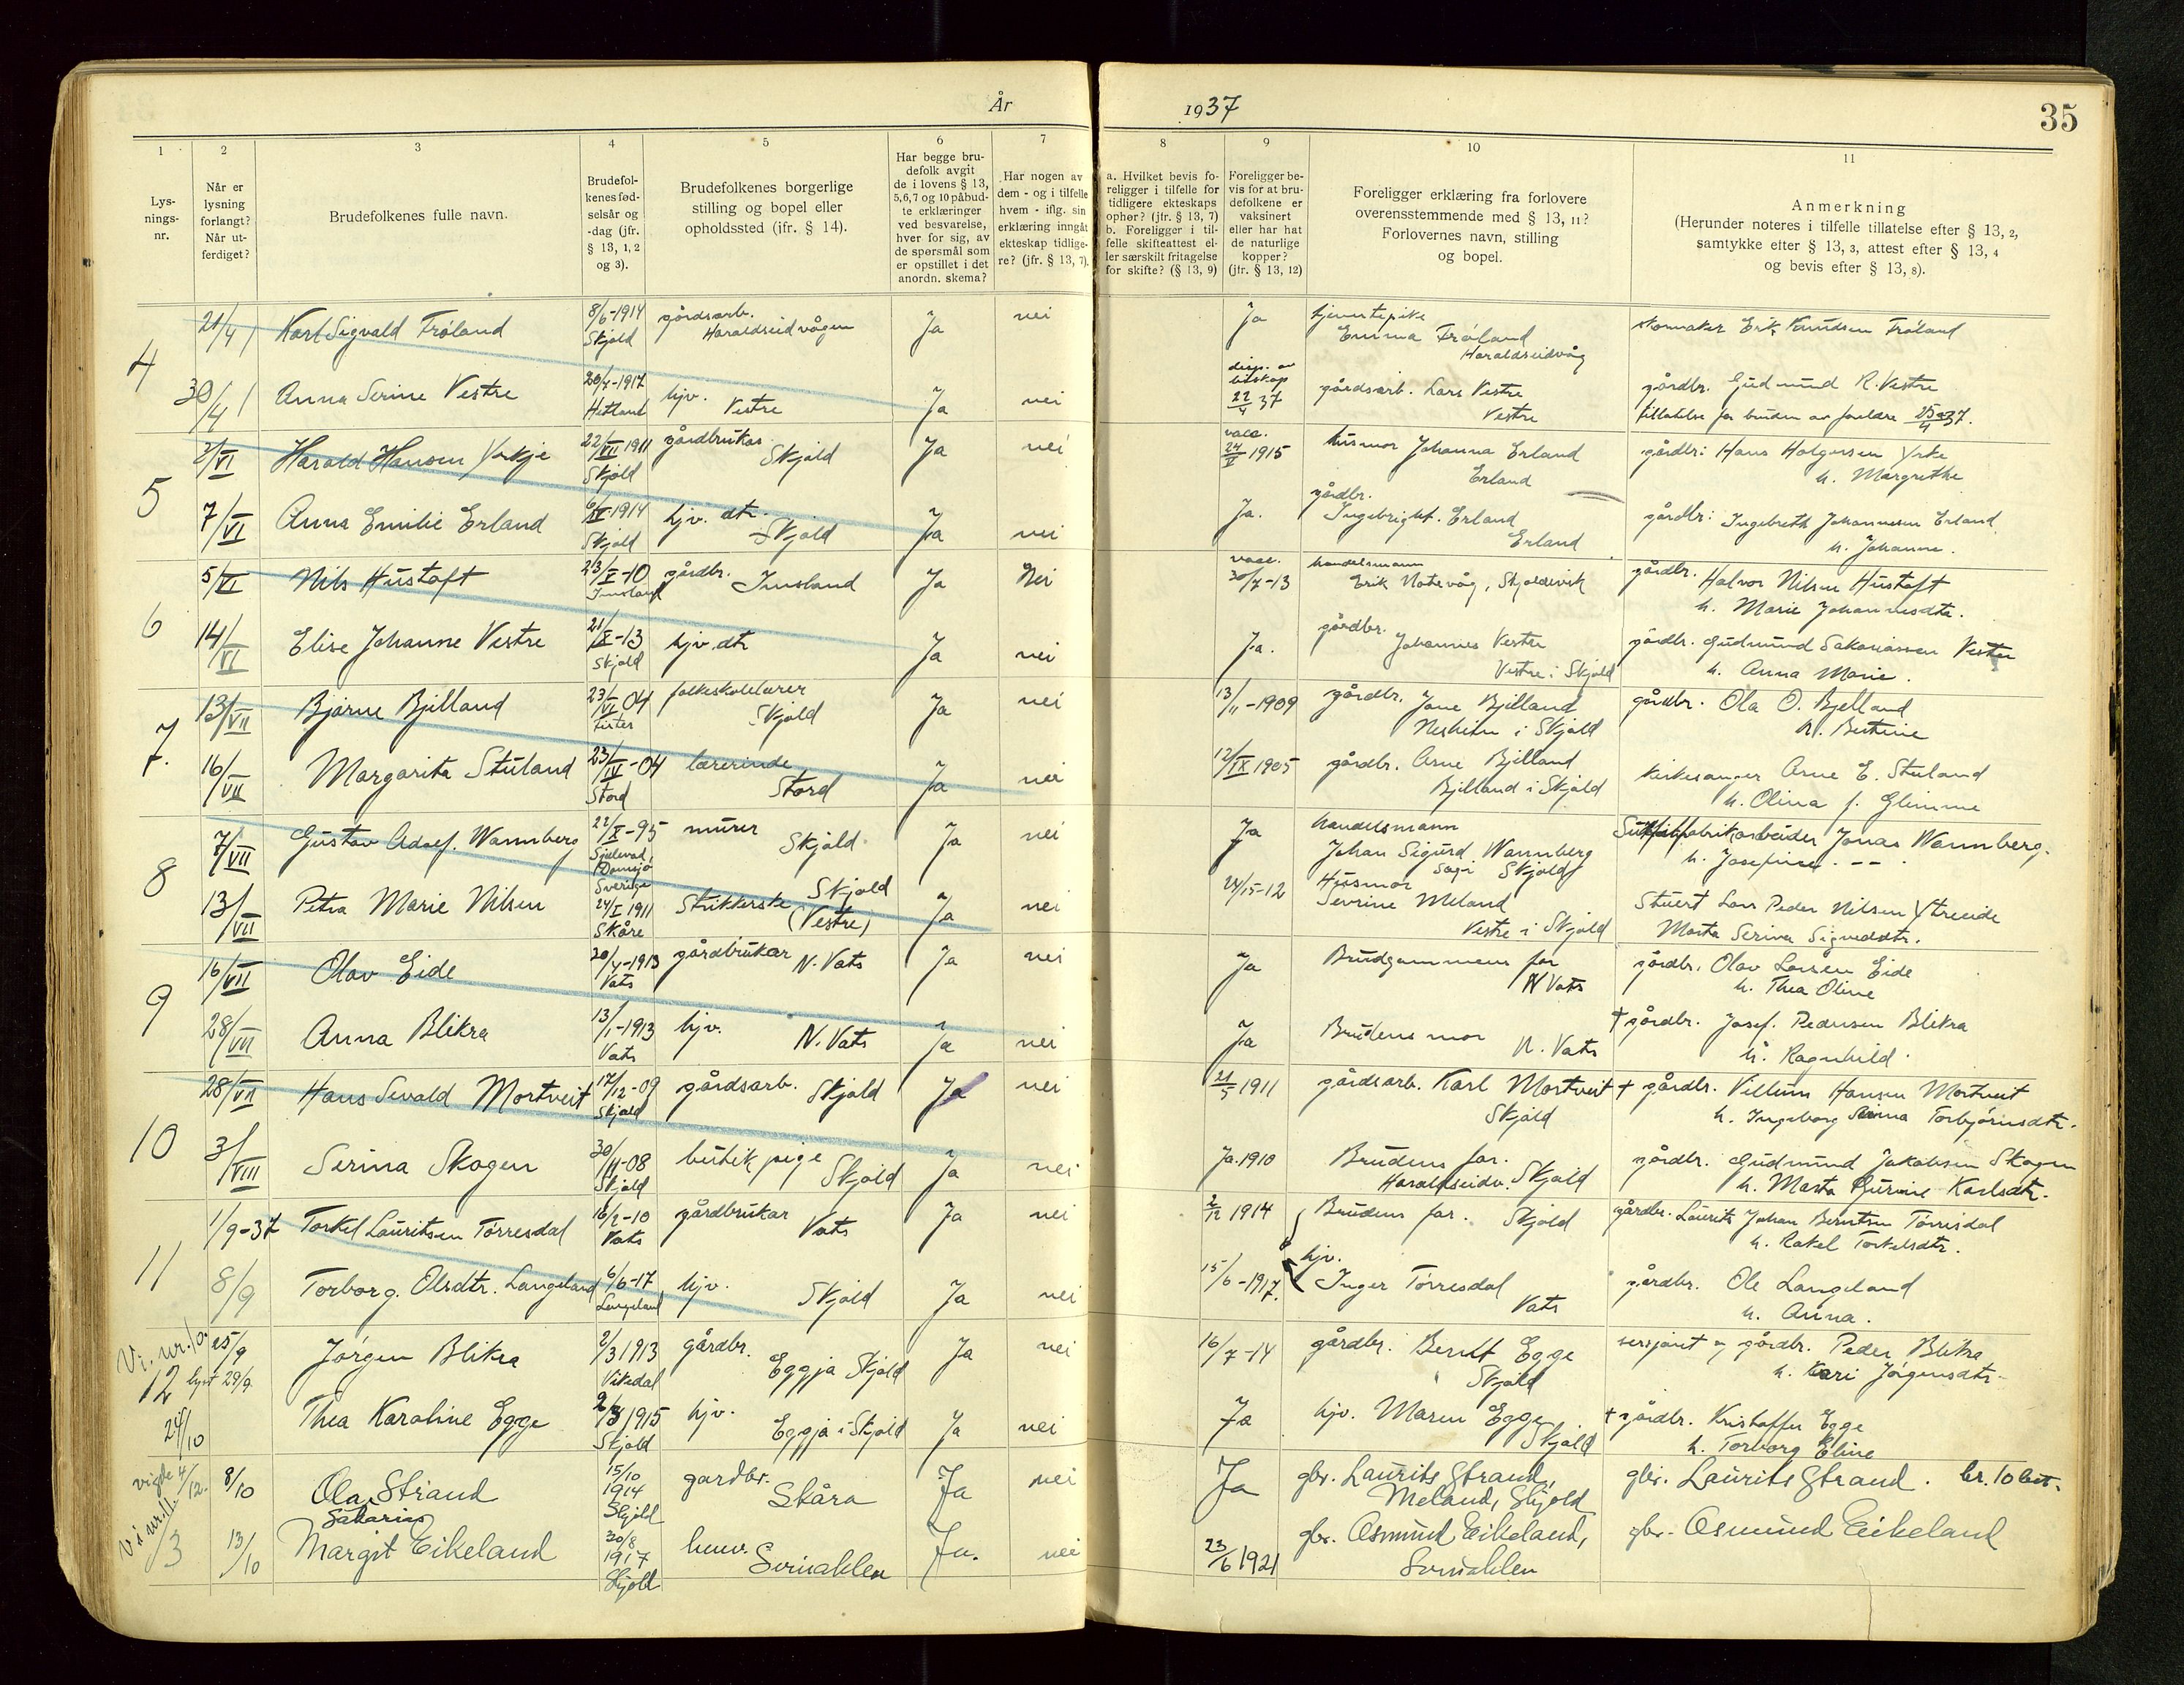 År 1937
35
1
2
3
4
5
6
7
8
9
10
11
Lys-
nings-
nr.
Når er
lysning
forlangt?
Når ut-
ferdiget?
Brudefolkenes fulle navn.
Brudefol-
kenes fød-
selsår og
-dag (jfr.
§ 13, 1, 2
og 3).
Brudefolkenes borgerlige
stilling og bopel eller
opholdssted (ifr. § 14).
Har begge bru-
defolk avgit
de i lovens § 13,
5,6,7 og 10 påbud-
te erklæringer
ved besvarelse,
hver for sig, av
de spørsmål som
er opstillet i det
anordn. skema?
Har nogen av
dem - og i tilfelle
hvem - iflg. sin
erklæring inngåt
ekteskap tidlige-
re? (jfr. § 13, 7).
a. Hvilket bevis fo-
religger i tilfelle for
tidligere ekteskaps
ophør? (jfr. § 13, 7)
b. Foreligger i til-
felle skifteattest el-
ler særskilt fritagelse
for skifte? (§ 13, 9)
Foreligger be-
vis for at bru-
defolkene er
vaksinert
eller har hat
de naturlige
kopper?
(jfr. § 13, 12)
Foreligger erklæring fra forlovere
overensstemmende med § 13, 11?
Forlovernes navn, stilling
og bopel.
Anmerkning
(Herunder noteres i tilfelle tillatelse efter § 13, 2,
samtykke efter § 13, 3, attest efter § 13, 4
og bevis efter § 13, 8).
4
21/4
Karl Sigvald Frøland
8/6-1914
Skjold
gårdsarb.
Haraldseidvågen
Ja
nei
Ja
tjenestepike
Emma Frøland
Haraldseidvåg
skomaker Erik Knudsen Frøland
30/4
Anna Serine Vestre
20/4-1917
Hetland
hjv.
Vestre
Ja
nei
disp. av
biskop
22/4 37
gårdsarb. Lars Vestre
Vestre
gårdbr. Gudmund R. Vestre
tillatelse for bruden av foreldre 25/4 37.
5
2/VI
Harald Hansen Yrkje
22/VII 1911
Skjold
gårdbrukar
Skjold
Ja
nei
vacc.
24/V 1915
husmor Johanna Erland
Erland
gårdbr: Hans Holgersen Yrke
h. Margrethe
7/VI
Anna Emilie Erland
6/V-1914
Skjold
hjv. dtr.
Skjold
Ja
nei
Ja.
gårdbr.
Ingebrigt. Erland
Erland
gårdbr: Ingebreth Johannesen Erland
h. Johanne.
6
5/VI
Nils Hustoft
23/V-10
Imsland
gårdbr.
Imsland
Ja
Nei
vacc.
30/7-13
handelsmann
Erik Notevåg, Skjoldevik
gårdbr. Halvor Nilsen Hustoft
h. Marie Johannesdtr.
14/VI
Elise Johanne Vestre
21/X-13
Skjold
hjv. dtr
Ja
nei
Ja.
gårdbr.
Johannes Vestre
Vestre i Skjold
gårdbr. Gudmund Sakariassen Vestre
h. Anna Marie.
7.
13/VII
Bjarne Bjelland
23/VI 04
folkeskolelærer
Skjold
Ja
nei
13/11-1909
gårdbr. Jone Bjelland
Nesheim i Skjold
gårdbr. Ola O. Bjelland
h. Bertine
16/VII
Margarita Stuland
23/IV-04
Stord
lærerinde
Stord
Ja
nei
12/IX 1905
gårdbr. Arne Bjelland
Bjelland i Skjold
kirkesanger Arne E. Stuland
h. Olina f. Glimme
8
7/VII
Gustav Adolf. Wannberg
22/X-95
Själevad,
Domsjö
Sverige
murer
Skjold
Ja
nei
Ja
handelsmann
Johan Sigurd Wannberg
Skjold
Sulfitfabrikarbeider Jonas Wannberg.
h. Josefine. -- .
13/VII
Petra Marie Nilsen
24/I 1911
Skåre
Strikkerske
Skjold
(Vestre)
Ja
nei
24/5-12
Husmor
Sevrine Meland
Vestre i Skjold
Stuert Lars Peder Nilsen Ytreeide
Marta Serina Sigveddtr.
9
16/VII
Olav Eide
20/4-1913
Vats
gårdbrukar
N. Vats
Ja
nei
Ja
Brudgommens far
N Vats
gårdbr. Olav Larsen Eide
h. Thea Oline
28/VII
Anna Blikra
13/1-1913
Vats
hjv.
N. Vats
Ja
nei
Ja
Brudens mor
N. Vats
† gårdbr. Josef. Pedersen Blikra
h. Ragnhild.
10
28/VII
Hans Sevald Mortveit
17/12-09
Skjold
gårdsarb.
Skjold
Ja
nei
21/5 1911
gårdsarb. Karl Mortveit
Skjold
† gårdbr. Villum Hansen Mortveit
h. Ingeborg Serina Torbjørnsdtr.
3/VIII
Serina Skogen
30/11-08
Skjold
butikpige
Skjold
Ja
nei
Ja. 1910
Brudens far.
Haraldseidv. Skjold
gårdbr. Gudmund Jakobsen Skogen
h. Marta Gurine Karlsdtr.
11
1/9-37
Torkel Lauritsen Tørresdal
16/2-10
Vats
gårdbrukar
Vats
Ja
nei
2/12 1914
Brudens far. Skjold
gårdbr. Laurits Johan Berntsen Tørresdal
h. Rakel Torkelsdtr.
8/9
Torborg. Olsdtr. Langeland
6/6-17
Langeland
hjv.
Skjold
Ja
nei
15/6-1917.
hjv.
Inger Tørresdal
Vats
gårdbr. Ole Langeland
h. Anna.
Vi. nr. 10.
12
25/9
lyst 29/9
Jørgen Blikra
2/3 1913
Vikedal
gårdbr.
Eggja Skjold
Ja
nei
16/7-14
gårdbr. Berdt Egge
Skjold
sersjant og gårdbr. Peder Blikra
h. Kari Jørgensdtr.
24/10
Thea Karoline Egge
2/3 1915
Skjold
hjv.
Eggja i Skjold
Ja
nei
Ja
hjv. Maren Egge
Skjold
† gårdbr. Kristoffer Egge
h. Torborg Eline
vigde 4/12.
Vi nr. 11.
13
8/10
Ola Strand
Sakarias
15/10
1914
Skjold
gardbr.
Skåra
Ja
nei
Ja
gbr. Laurits Strand,
Meland, Skjold
gbr. Laurits Strand. kr. 10 bet.
13/10
Margit Eikeland
30/8
1917
Skjold
Ja.
nei
23/6 1921
gbr. Osmund Eikeland,
gbr. Osmund Eikeland